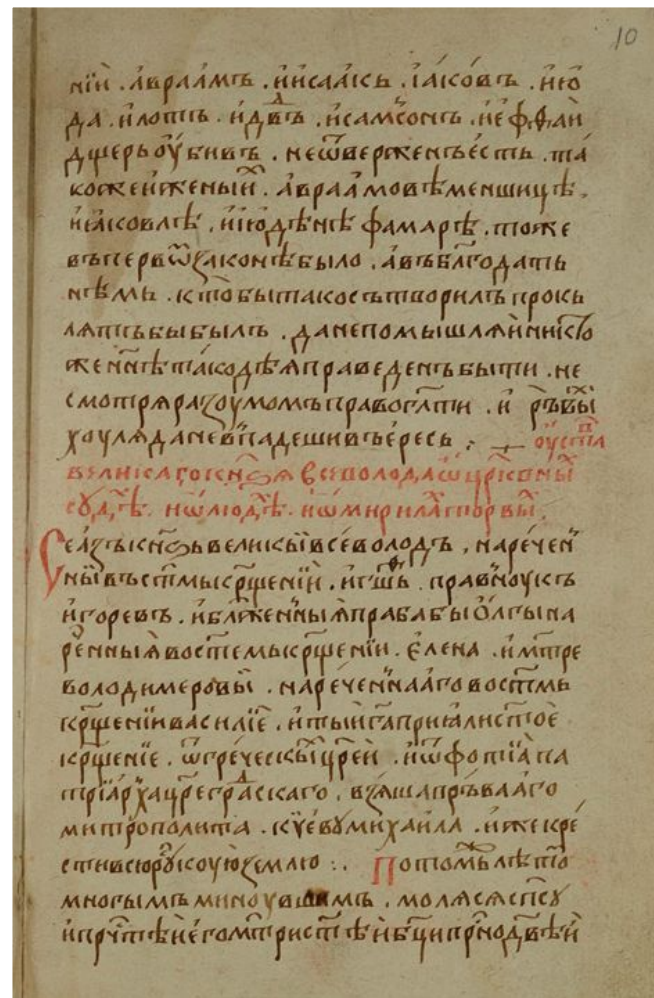 10
нїи . авраамъ . иисаакъ . іаковъ . ию
да . илотъ . идв͠дъ . исамсонъ . иеффаи
дщерьоубивъ . неѿверженъесть . та
кожеиженыи҃ . авраамовѣменшицѣ .
иіаковлѣ . июдѣнѣфамарѣ . тоже
въпервѡ҃законѣбыло . авъбл҃годать
нѣмь . ктобытакосътворилъпрокь
лятъбыбылъ . данепомышляи
женнѣтакодѣяправеденъбыти . не
смотряразоумомъправог҃лти . и
хоуляданевпадешивъересь : оуста҃в
великагокн҃зявсеволодаѿцр҃ковны҃
судѣ҃ . иѡлюдѣ҃ . иѡмирила҃
Сеазъкн҃зьвеликыивсеволодъ , наречен
ныивъст҃мыкр҃щенїи . правноукъ
игоревъ . ибл҃женныяпрабабыолгына
ре҃нныявост҃емькр҃щенїи . елена . им҃тре
володимеровы҃ . нареченнааговост҃мь
кр҃щенїивасилїе . приалист҃ое
кр҃щенїе . ѿгреческы҃цр҃еи . иѿфотїапа
трїарха҃цреград҃скаго , взяшапръвааго
митрополита . кїевумихаила . ижекре
стивсюру҃скоуюземлю : . Потомълѣто҃
многымъминоувшимъ , моляся
ипрч҃тѣиегомт҃ри ибц҃иприснодв҃ѣи